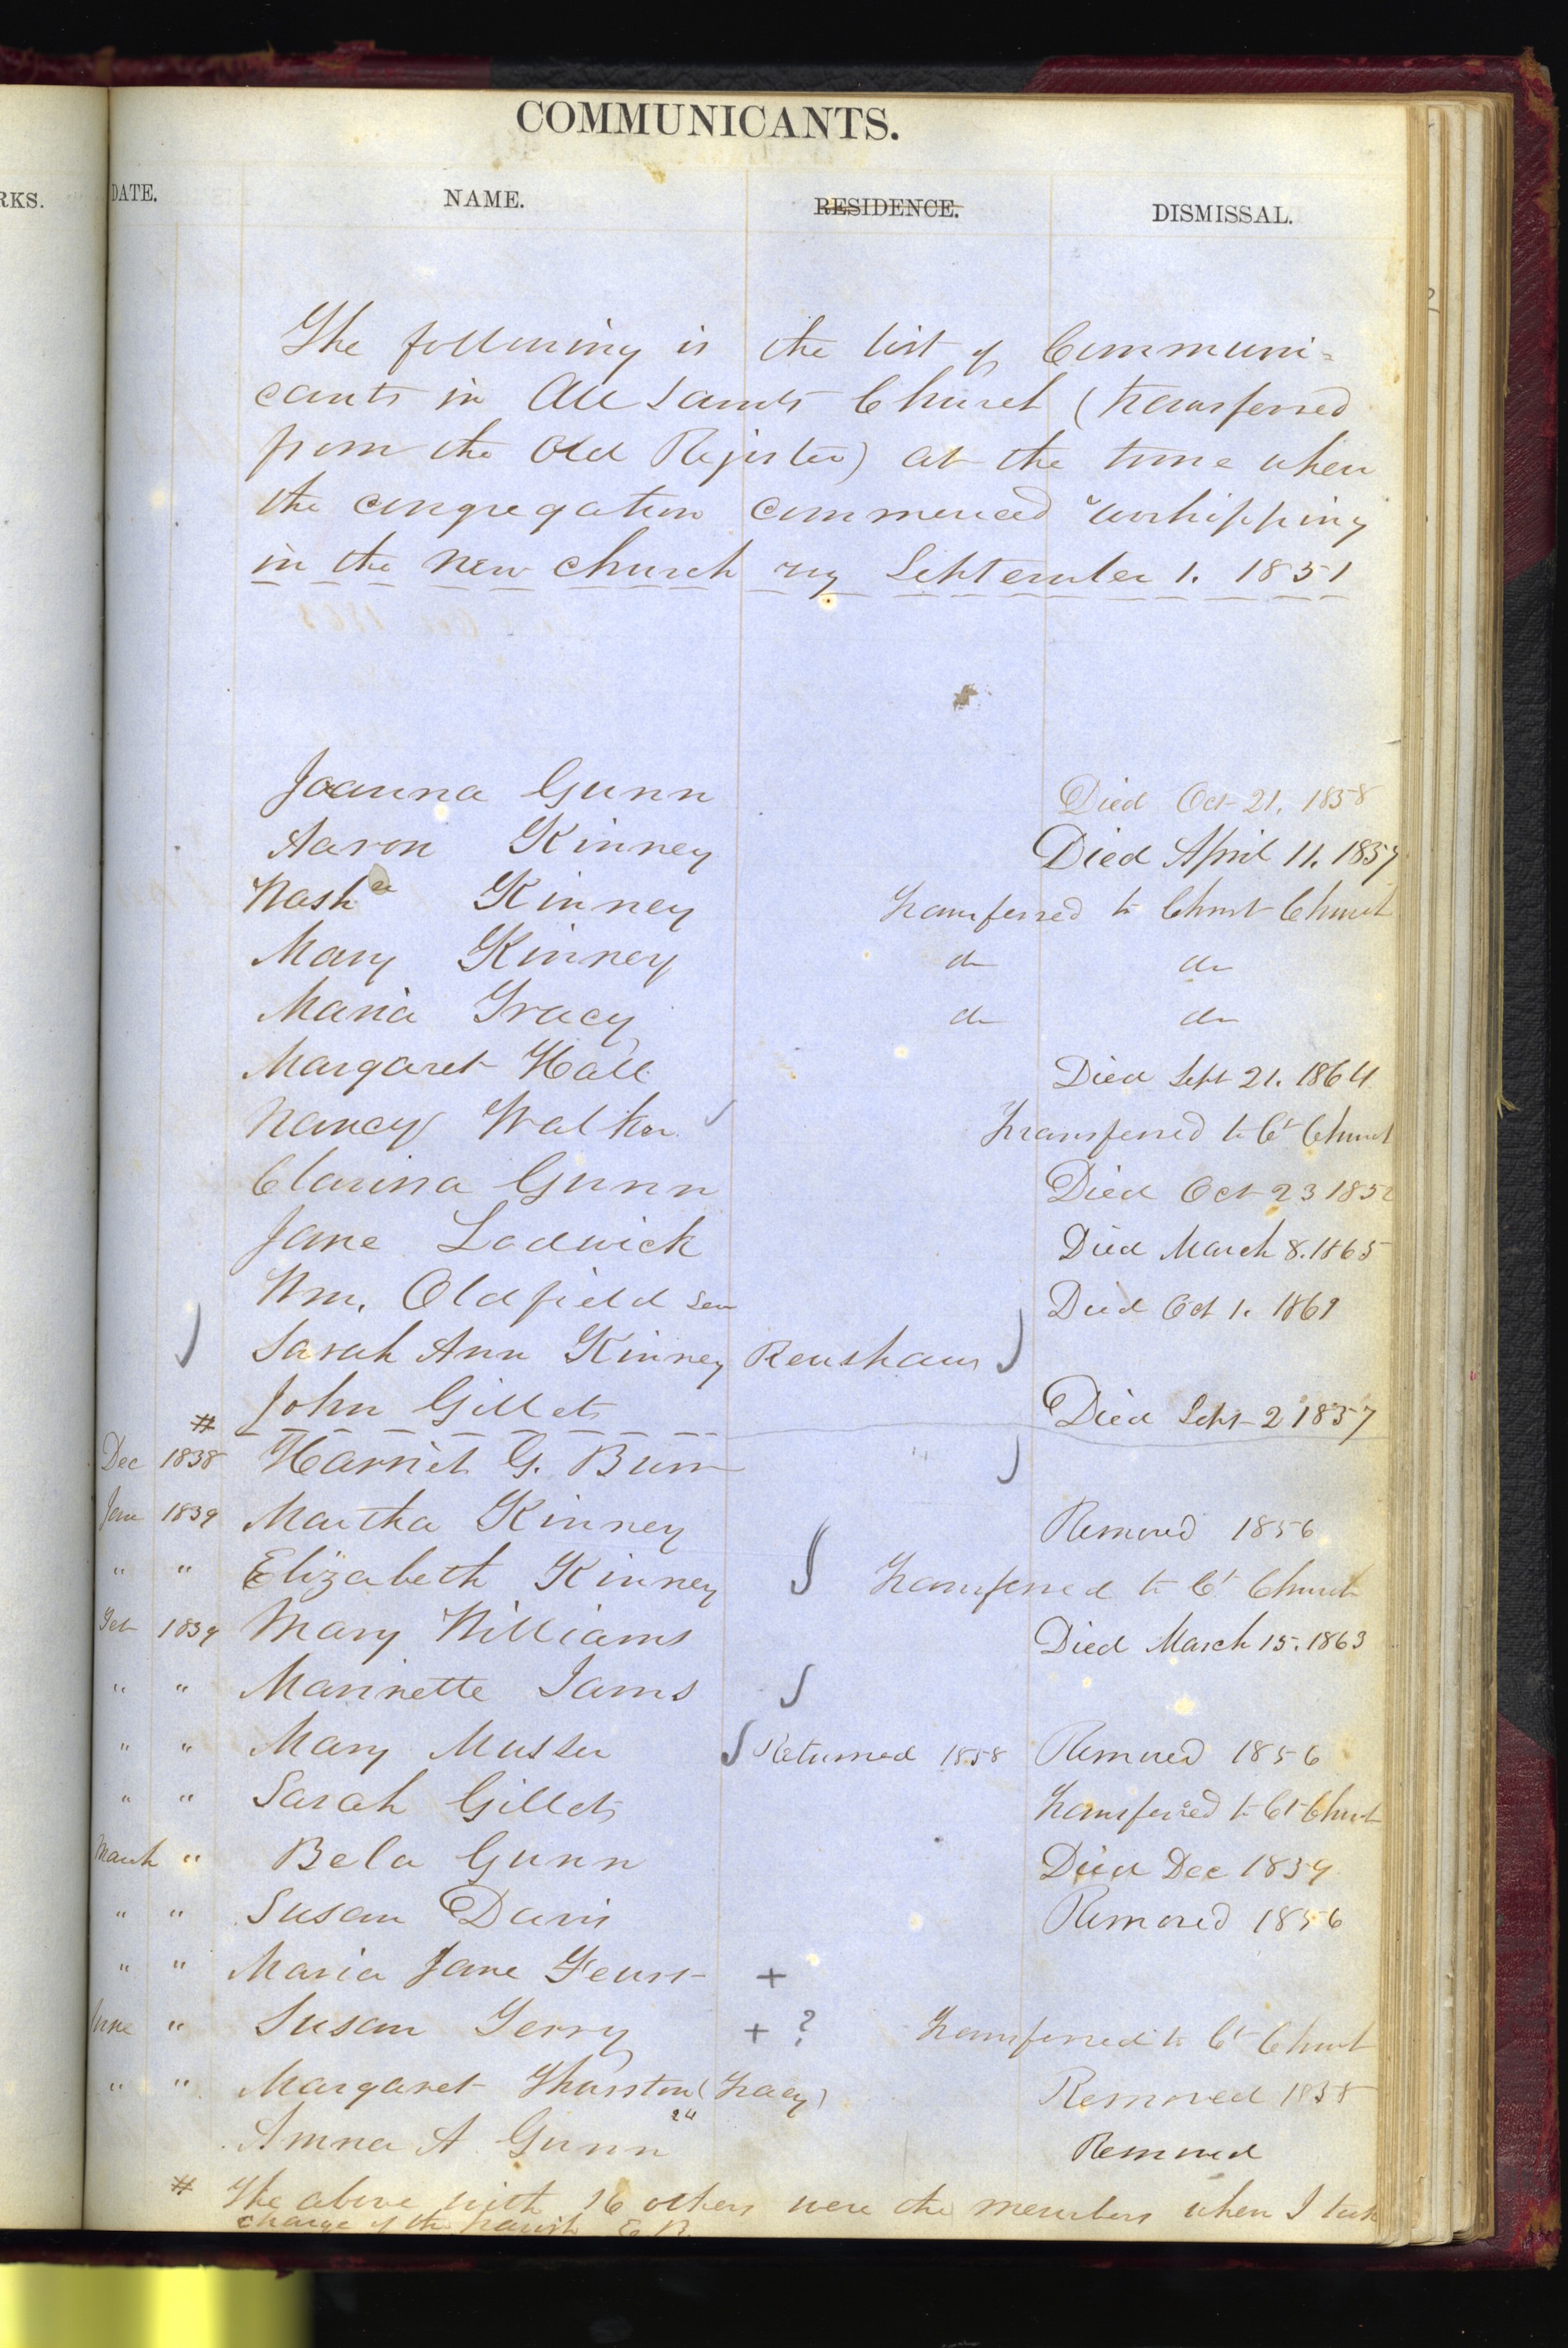 COMMUNICANTS.
RKS. DATE. NAME. RESIDENCE. DISMISSAL.
The following is the list of Communi=
cants in All Saints Church (transferred
from the Old Register) at the time when
the congregation commenced worshipping
in the new church September 1. 1851
Joanna Gunn Died Oct 21. 1858
Aaron Kinney Died April 11. 1857
Wash Kinney Transferred to Christ Church
Mary Kinney do do
Maria Tracy do do
Margaret Hall Died Sept 21. 1864
Nancy Walker Transferred to Ct Church
Clarissa Gunn Died Oct 23 185
Jane Lodwick Died March 8. 1865
Wm. Oldfield Sen Died Oct 1. 1869
Sarah Ann Kinney Renshaw
# John Gillet Died Sept 2 1857
Dec 1838 Harriet G. Burr
Jan 1839 Martha Kinney Removed 1856
" " Elizabeth Kinney Transferred to Ct Church
Feb 1839 Mary Williams Died March 15. 1863
" " Marinette Iams
" " Mary Musser Returned 1858 Removed 1856
" " Sarah Gillet Transferred to Ct Church
March " Bela Gunn Died Dec 1859
" " Susan Davis Removed 1856
" " Maria Jane Feurt +
June " Susan Terry + ? Transferred to Ct Church
" " Margaret Thurston (Tracy) Removed 1858
Amna A. Gunn Removed
# The above with 16 others were the members when I took
charge of the parish E B